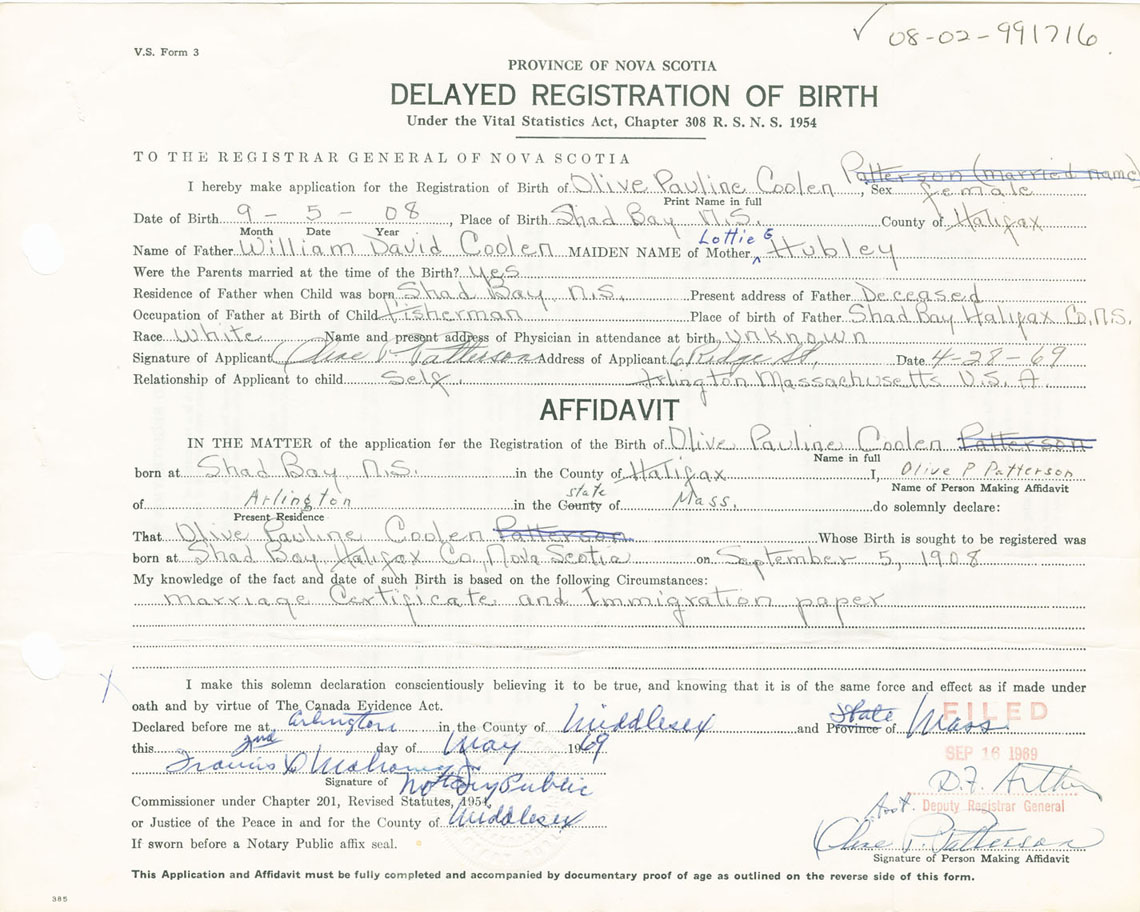 ✓ 08-02-991716.
V.S. Form 3
PROVINCE OF NOVA SCOTIA
DELAYED REGISTRATION OF BIRTH
Under the Vital Statistics Act, Chapter 308 R. S. N. S. 1954
TO THE REGISTRAR GENERAL OF NOVA SCOTIA
Patterson (married name)
I hereby make application for the Registration of Birth of Olive Pauline Coolen, Sex female
Print Name in full
Date of Birth 9 - 5 - 08, Place of Birth Shad Bay N.S. County of Halifax
Month Date Year
Lottie G
Name of Father William David Coolen MAIDEN NAME of Mother ^ Hubley
Were the Parents married at the time of the Birth? yes
Residence of Father when Child was born Shad Bay, N.S. Present address of Father Deceased
Occupation of Father at Birth of Child Fisherman Place of birth of Father Shad Bay Halifax Co., N.S.
Race White Name and present address of Physician in attendance at birth Unknown
Signature of Applicant Olive P Patterson Address of Applicant 6 Ridge St, Date 4-28-69
Relationship of Applicant to child Self. Arlington Massachusetts U.S.A.
AFFIDAVIT
IN THE MATTER of the application for the Registration of the Birth of Olive Pauline Coolen Patterson
Name in full
born at Shad Bay N.S. in the County of Halifax I, Olive P Patterson
Name of Person Making Affidavit
state
of Arlington in the County of Mass. do solemnly declare:
Present Residence
That Olive Pauline Coolen Patterson Whose Birth is sought to be registered was
born at Shad Bay Halifax Co., Nova Scotia on September 5, 1908
My knowledge of the fact and date of such Birth is based on the following Circumstances:
Marriage Certificate and Immigration paper
I make this solemn declaration conscientiously believing it to be true, and knowing that it is of the same force and effect as if made under
oath and by virtue of The Canada Evidence Act.
State
FILED
Declared before me at Arlington in the County of Middlesex and Province of Mass.
this 2nd day of May 1969
SEP 16 1969
Francis D Mahoney Jr
Signature of Notary Public
D.F. Arthur
Commissioner under Chapter 201, Revised Statutes, 1954
Asst. Deputy Registrar General
or Justice of the Peace in and for the County of Middlesex
Olive P. Patterson
If sworn before a Notary Public affix seal.
Signature of Person Making Affidavit
This Application and Affidavit must be fully completed and accompanied by documentary proof of age as outlined on the reverse side of this form.
385